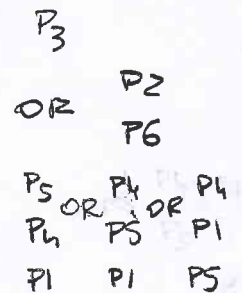 P3
P2
OR
P6
P5 P4 P4
OR OR
P4 P5 P1
P1 P1 P5